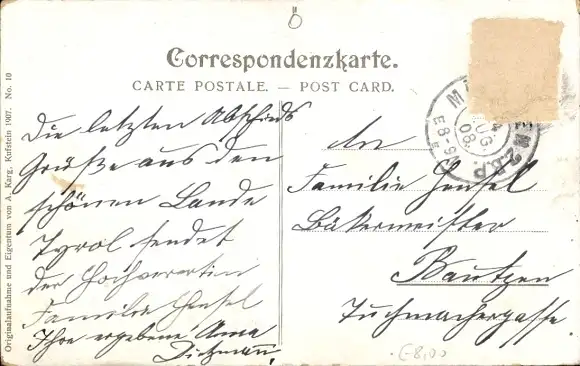 Correspondenzkarte.
CARTE POSTALE. — POST CARD.
Originalaufnahme und Eigentum von A. Karg, Kufstein 1907. No. 10
Die letzten Abschieds
Grüße aus den
schönen Lande
Tyrol sendet
der Hochverertin
Familie Hensel
Ihre ergebene Anna
An
Familie Hensel
Bäkermeister
Bautzen
Tuchmachergasse.
AUG.
08.
E 8-9
M.2.B.P.